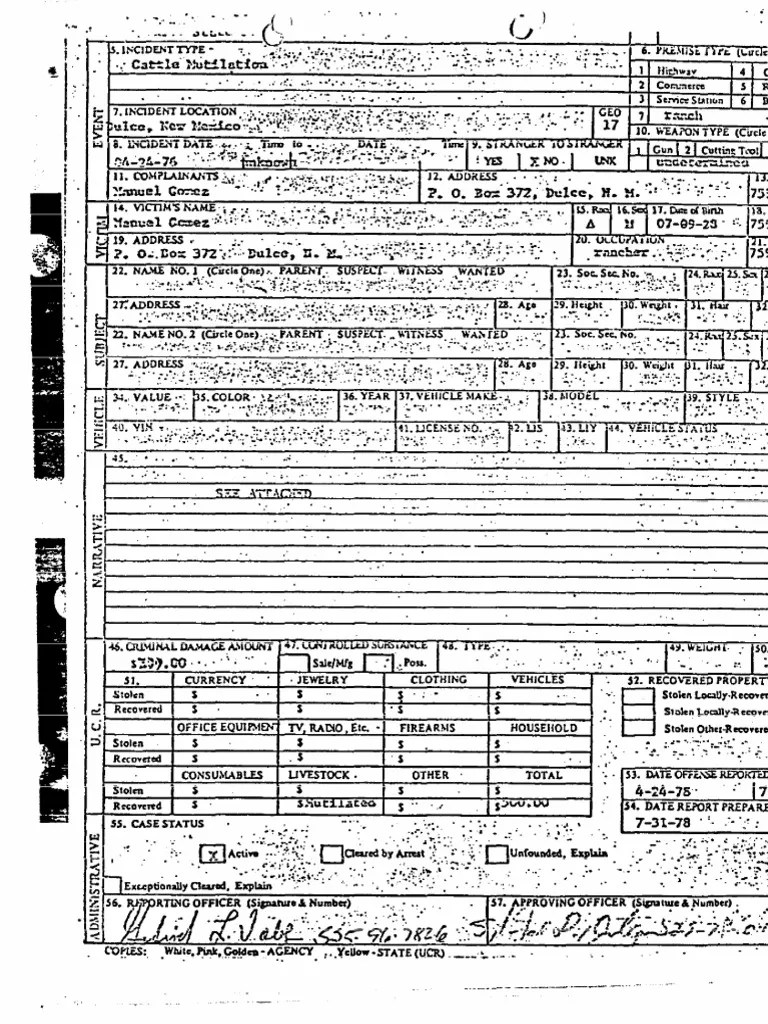 5. INCIDENT TYPE - 6. PREMISE TYPE (Circle
Cattle Mutilation
1 Highway 4
2 Commerce 5
3 Service Station 6
7. INCIDENT LOCATION GEO 7 ranch
Dulce, New Mexico 17 10. WEAPON TYPE (Circle
8. INCIDENT DATE Time to DATE Time 9. STRANGER TO STRANGER 1 Gun 2 Cutting Tool
-24-76 Unknown YES X NO UNK undetermined
11. COMPLAINANTS 12. ADDRESS 13.
Manuel Gomez P. O. Box 372, Dulce, N. M. 75
14. VICTIM'S NAME 15. Race 16. Sex 17. Date of Birth 18.
Manuel Gomez A M 07-09-23 75
19. ADDRESS 20. OCCUPATION 21.
P. O. Box 372 Dulce, N. M. rancher 75
22. NAME NO. 1 (Circle One) PARENT SUSPECT WITNESS WANTED 23. Soc. Sec. No. 24. Race 25. Sex
27. ADDRESS 28. Age 29. Height 30. Weight 31. Hair 32
22. NAME NO. 2 (Circle One) PARENT SUSPECT WITNESS WANTED 23. Soc. Sec. No. 24. Race 25. Sex
27. ADDRESS 28. Age 29. Height 30. Weight 31. Hair 32
34. VALUE 35. COLOR 36. YEAR 37. VEHICLE MAKE 38. MODEL 39. STYLE
40. VIN 41. LICENSE NO. 42. LIS 43. LIY 44. VEHICLE STATUS
45.
SEE ATTACHED
EVENT
VICTIM
SUBJECT
VEHICLE
NARRATIVE
46. CRIMINAL DAMAGE AMOUNT 47. CONTROLLED SUBSTANCE 48. TYPE 49. WEIGHT 50.
Sale/Mfg Poss.
51. CURRENCY JEWELRY CLOTHING VEHICLES 52. RECOVERED PROPERT
Stolen $ $ $ $ Stolen Locally-Recover
Recovered $ $ $ $ Stolen Locally-Recovere
OFFICE EQUIPMENT TV, RADIO, Etc. FIREARMS HOUSEHOLD Stolen Other-Recovere
Stolen $ $ $ $
Recovered $ $ $ $
CONSUMABLES LIVESTOCK OTHER TOTAL 53. DATE OFFENSE REPORTED
Stolen $ $ $ $ 4-24-78 7
Recovered $ $Mutilated $ $500.00 54. DATE REPORT PREPARE
7-31-78
U.C.R.
55. CASE STATUS
X Active Cleared by Arrest Unfounded, Explain
Exceptionally Cleared, Explain
ADMINISTRATIVE
56. REPORTING OFFICER (Signature & Number) 57. APPROVING OFFICER (Signature & Number)
COPIES: White, Pink, Golden - AGENCY Yellow - STATE (UCR)